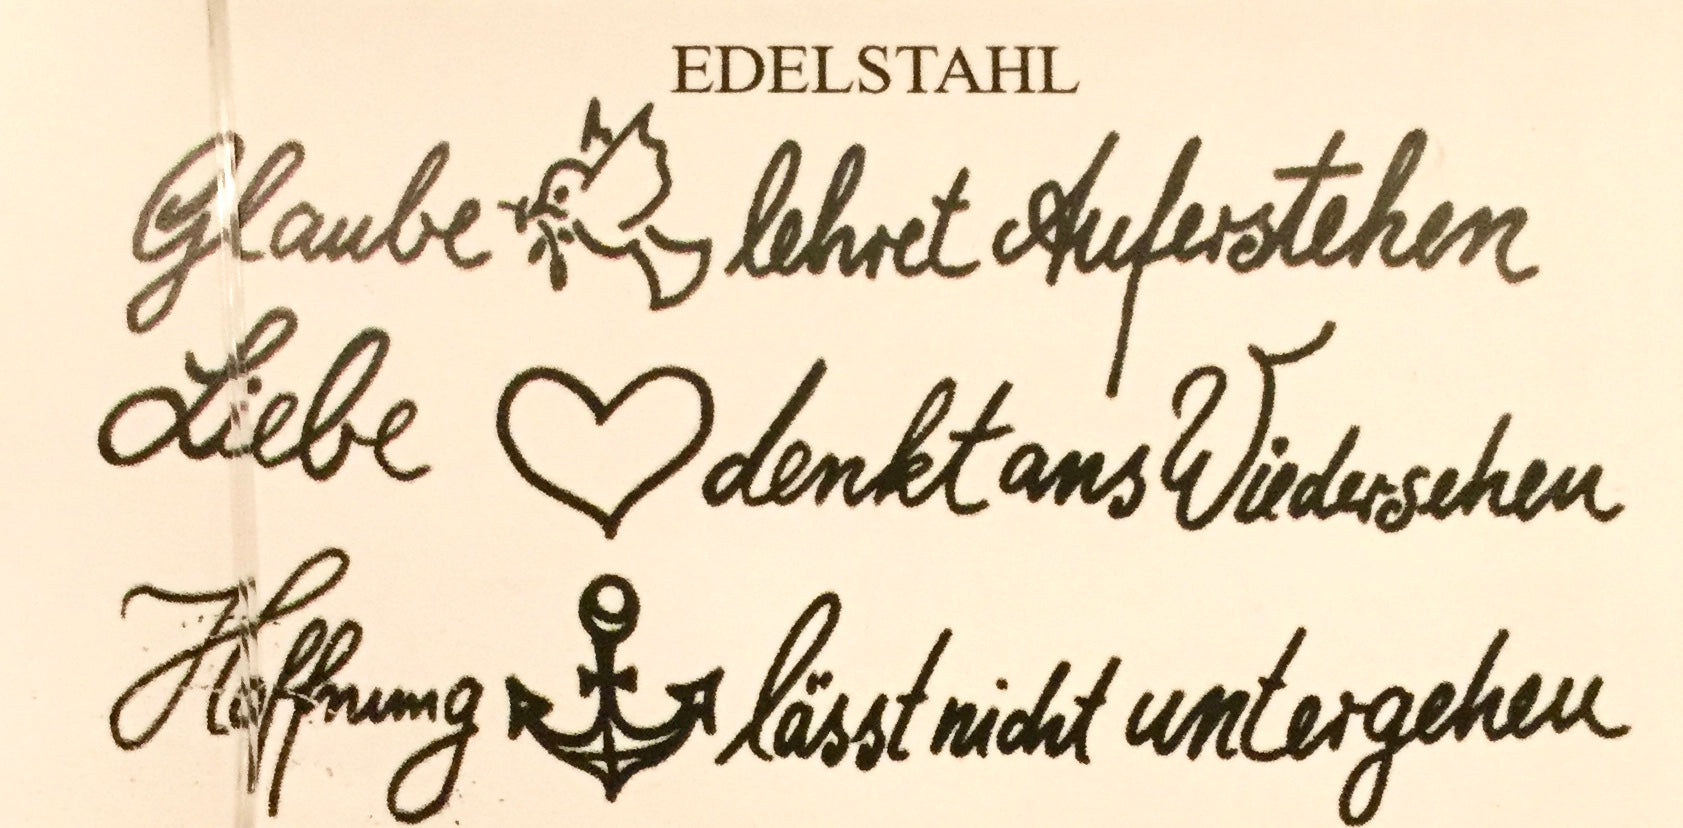 EDELSTAHL
Glaube lehret Auferstehen
Liebe denkt ans Wiedersehen
Hoffnung lässt nicht untergehen